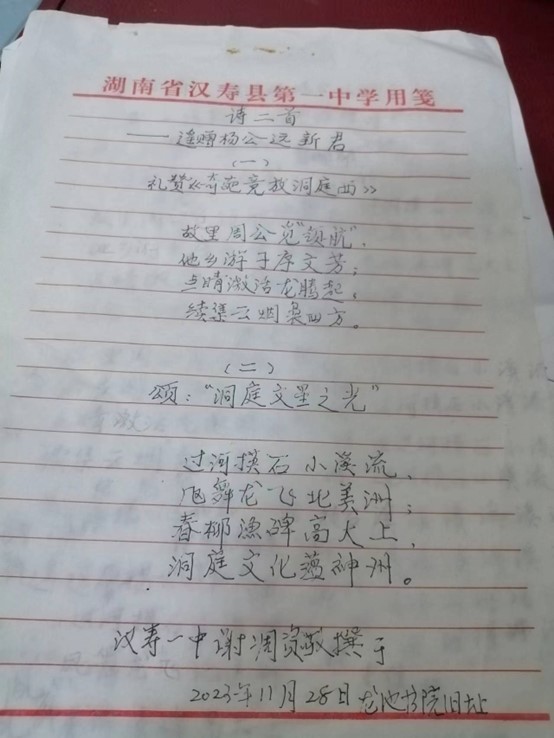 湖南省汉寿县第一中学用笺
诗二首
——遥赠杨公远新君
(一)
礼赞《奇葩竞放洞庭西》
故里周公觅"领航",
他乡游子序文芳;
点睛激活龙腾起,
续集云烟袅四方。
(二)
颂:"洞庭文星之光"
过河摸石小溪流,
凤舞龙飞北美洲;
春柳渔碑高大上,
洞庭文化蕴神州。
汉寿一中谢润资敬撰于
2023年11月28日龙池书院旧址